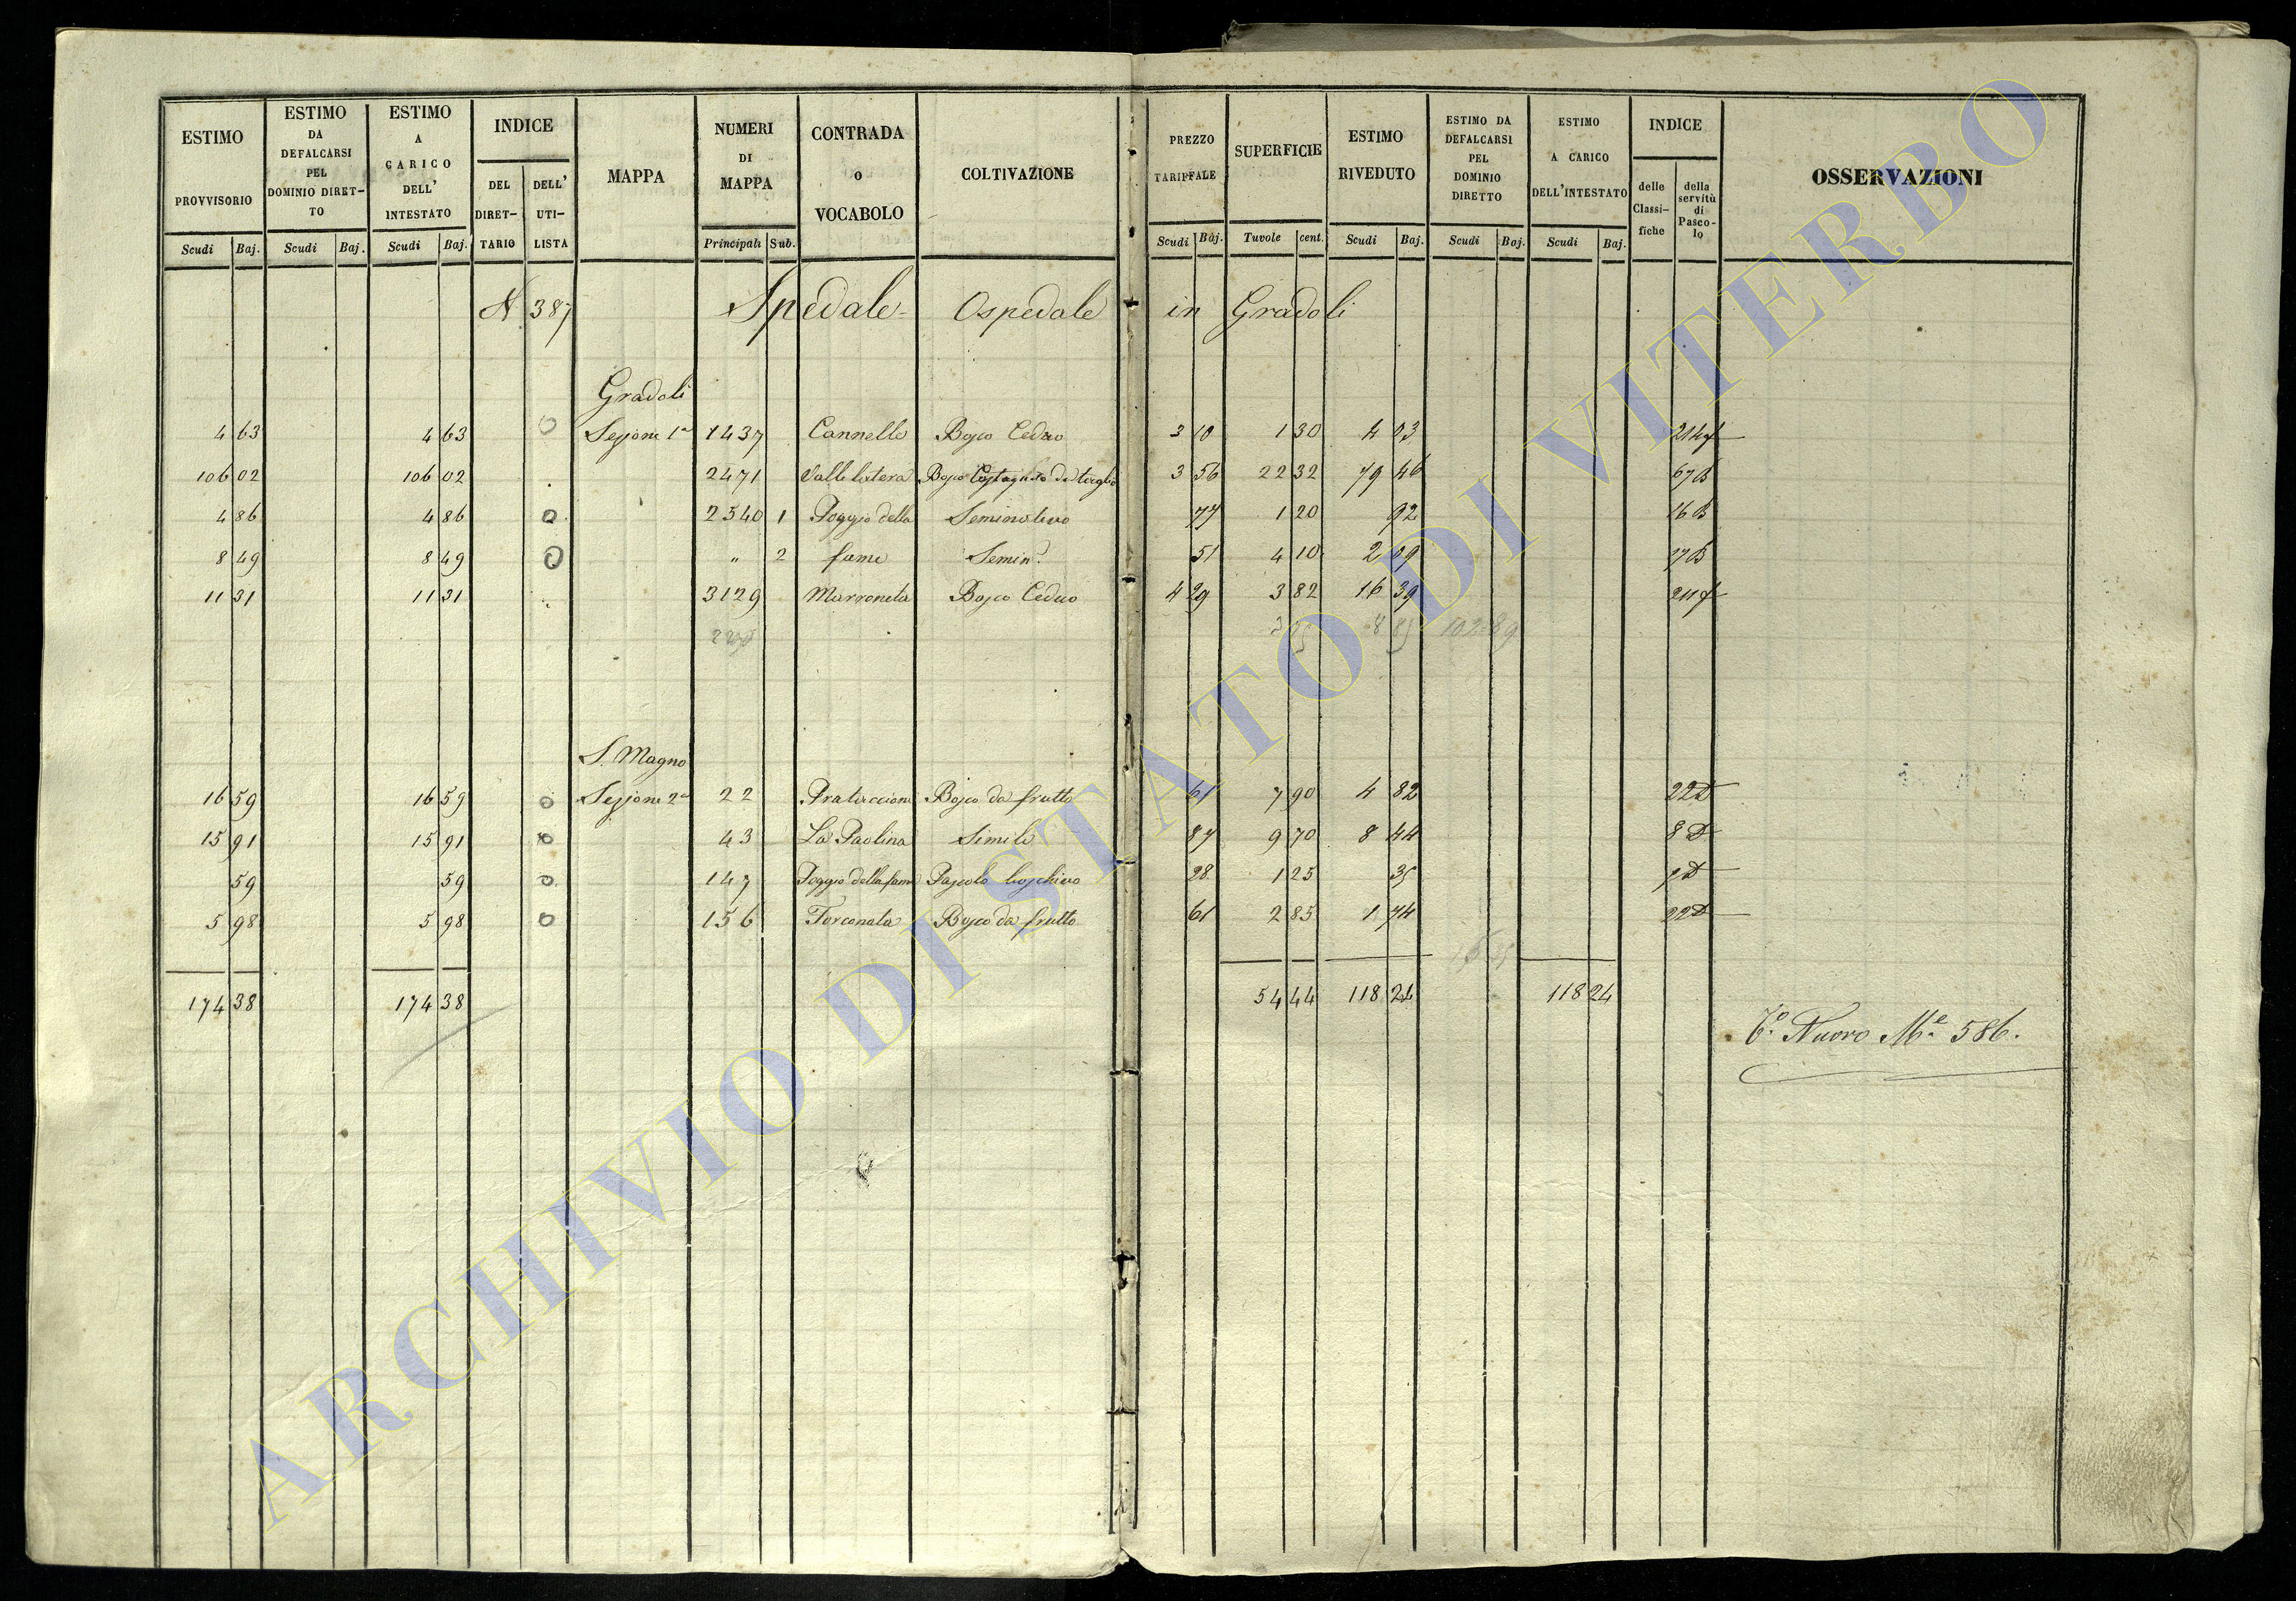 ESTIMO PROVVISORIO Scudi Baj. | ESTIMO DA DEFALCARSI PEL DOMINIO DIRET-TO Scudi Baj. | ESTIMO A CARICO DELL' INTESTATO Scudi Baj. | INDICE DEL DIRET-TARIO DELL' UTI-LISTA | MAPPA | NUMERI DI MAPPA Principali Sub. | CONTRADA o VOCABOLO | COLTIVAZIONE | PREZZO TARIFFALE Scudi Baj. | SUPERFICIE Tavole cent. | ESTIMO RIVEDUTO Scudi Baj. | ESTIMO DA DEFALCARSI PEL DOMINIO DIRETTO Scudi Baj. | ESTIMO A CARICO DELL'INTESTATO Scudi Baj. | INDICE delle Classi-fiche della servitù di Pasco-lo | OSSERVAZIONI
N. 387 Spedale - Ospedale in Gradoli
Gradoli
4 63 4 63 Sezione 1a 1437 Cannello Bosco Ceduo 3 10 1 30 4 03
106 02 106 02 2471 Valle latera Bosco Castagneto da taglio 3 56 22 32 79 46 67 B
4 86 4 86 2540 1 Poggio della Seminativo 77 1 20 92 16 B
8 49 8 49 " 2 fame Semin.o 51 4 10 2 09 17 B
11 31 11 31 3129 Marroneta Bosco Ceduo 4 29 3 82 16 39
102 89
S. Magno
16 59 16 59 Sezione 2a 22 Bosco da frutto 61 7 90 4 82 22 D
15 91 15 91 43 La Paolina Simile 87 9 70 8 44 8 D
59 59 147 Poggio della fame Pascolo boschivo 28 1 25 35
5 98 5 98 156 Forconata Bosco da frutto 61 2 85 1 74 22 D
174 38 174 38 54 44 118 24 118 24
Nuovo 586.
ARCHIVIO DI STATO DI VITERBO